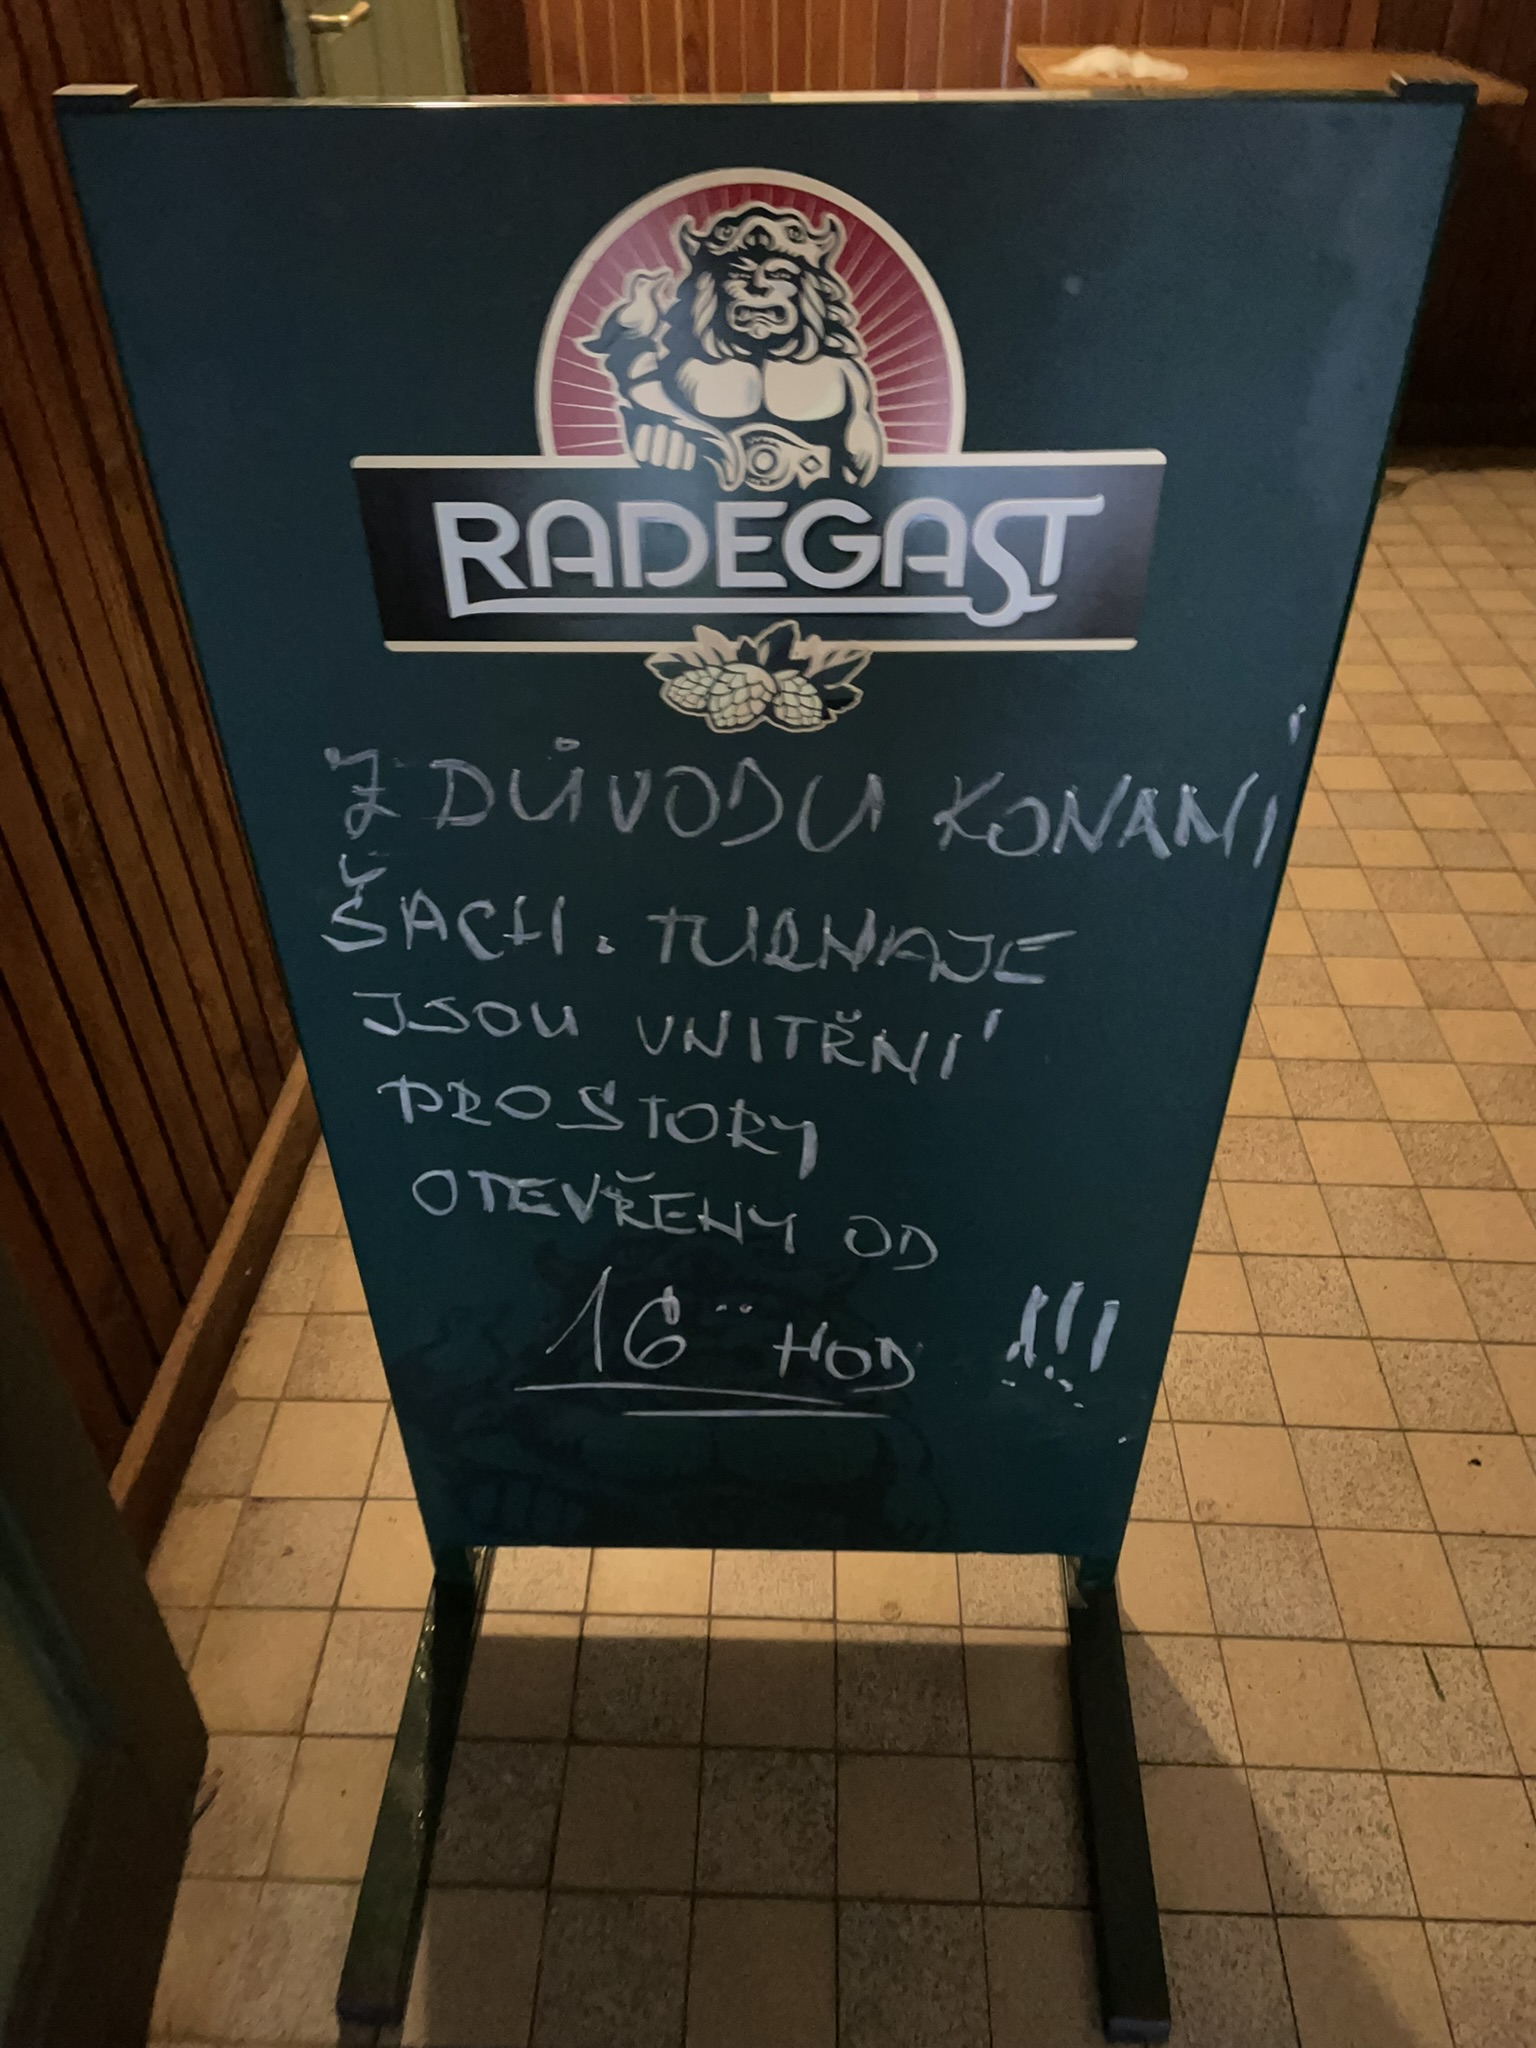 RADEGAST
Z DŮVODU KONÁNÍ
ŠACH. TURNAJE
JSOU VNITŘNÍ
PROSTORY
OTEVŘENY OD
16 HOD !!!